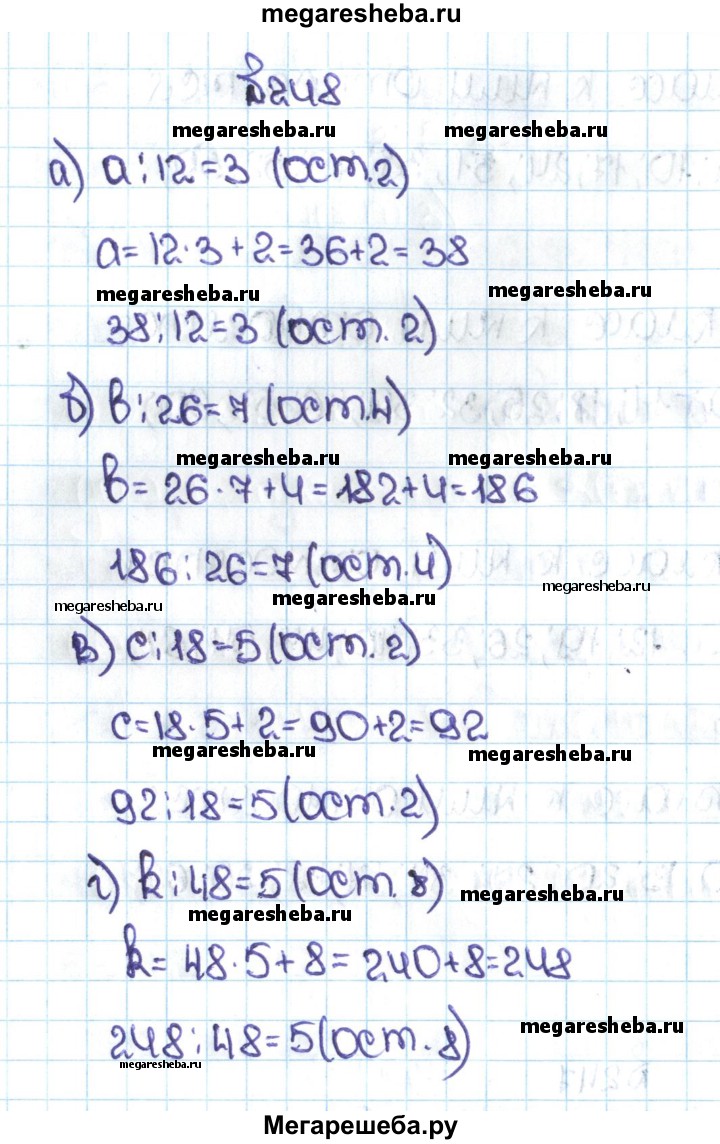 megaresheba.ru
№248
megaresheba.ru megaresheba.ru
а) a:12=3 (ост.2)
a=12·3+2=36+2=38
megaresheba.ru megaresheba.ru
38:12=3 (ост. 2)
б) b:26=7 (ост.4)
megaresheba.ru megaresheba.ru
b=26·7+4=182+4=186
186:26=7 (ост.4)
megaresheba.ru
megaresheba.ru megaresheba.ru
в) c:18=5(ост.2)
c=18·5+2=90+2=92
megaresheba.ru megaresheba.ru
92:18=5(ост.2)
г) k:48=5(ост. 8)
megaresheba.ru megaresheba.ru
k=48·5+8=240+8=248
248:48=5(ост.8)
megaresheba.ru
megaresheba.ru
Мегарешеба.ру